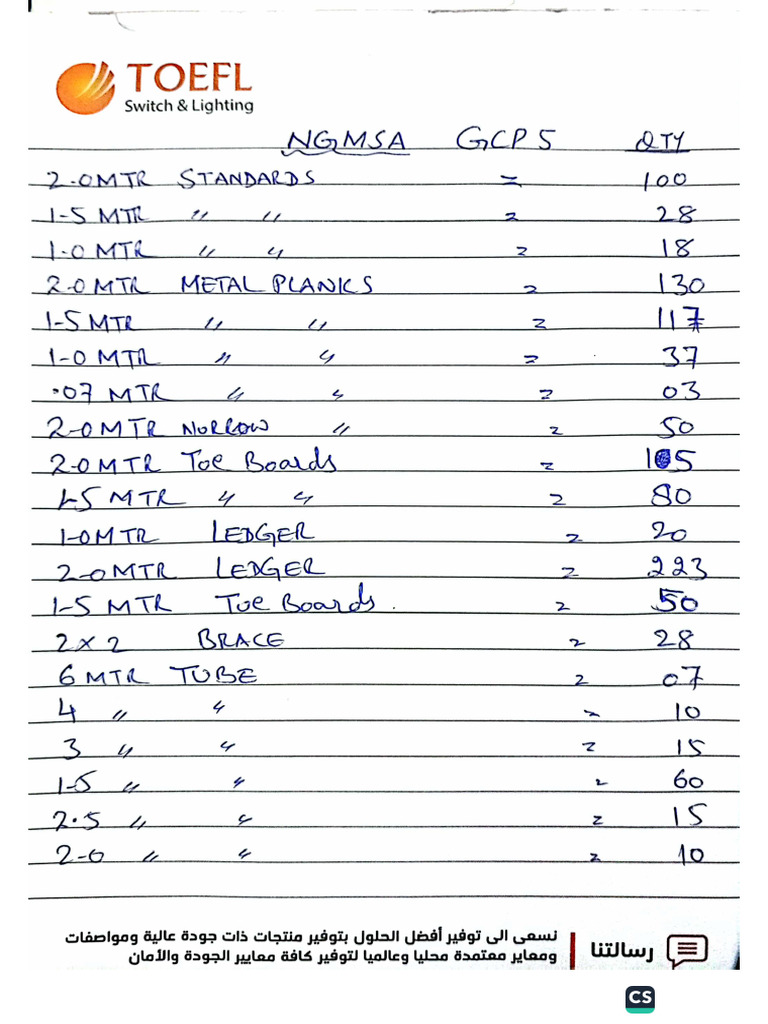 TOEFL
Switch & Lighting
NGMSA GCP5 QTY
2-0MTR STANDARDS = 100
1-5 MTR " " = 28
1-0 MTR " " = 18
2-0MTR METAL PLANKS = 130
1-5 MTR " " = 117
1-0 MTR " " = 37
.07 MTR " " = 03
2-0MTR NORROW " = 50
2-0MTR Toe Boards = 105
1-5 MTR " " = 80
1-0MTR LEDGER = 20
2-0MTR LEDGER = 223
1-5 MTR Toe Boards. = 50
2x2 BRACE = 28
6 MTR TUBE = 07
4 " " = 10
3 " " = 15
1-5 " " = 60
2.5 " " = 15
2-0 " " = 10
رسالتنا
نسعى الى توفير أفضل الحلول بتوفير منتجات ذات جودة عالية ومواصفات
ومعاير معتمدة محليا وعالميا لتوفير كافة معايير الجودة والأمان
CS